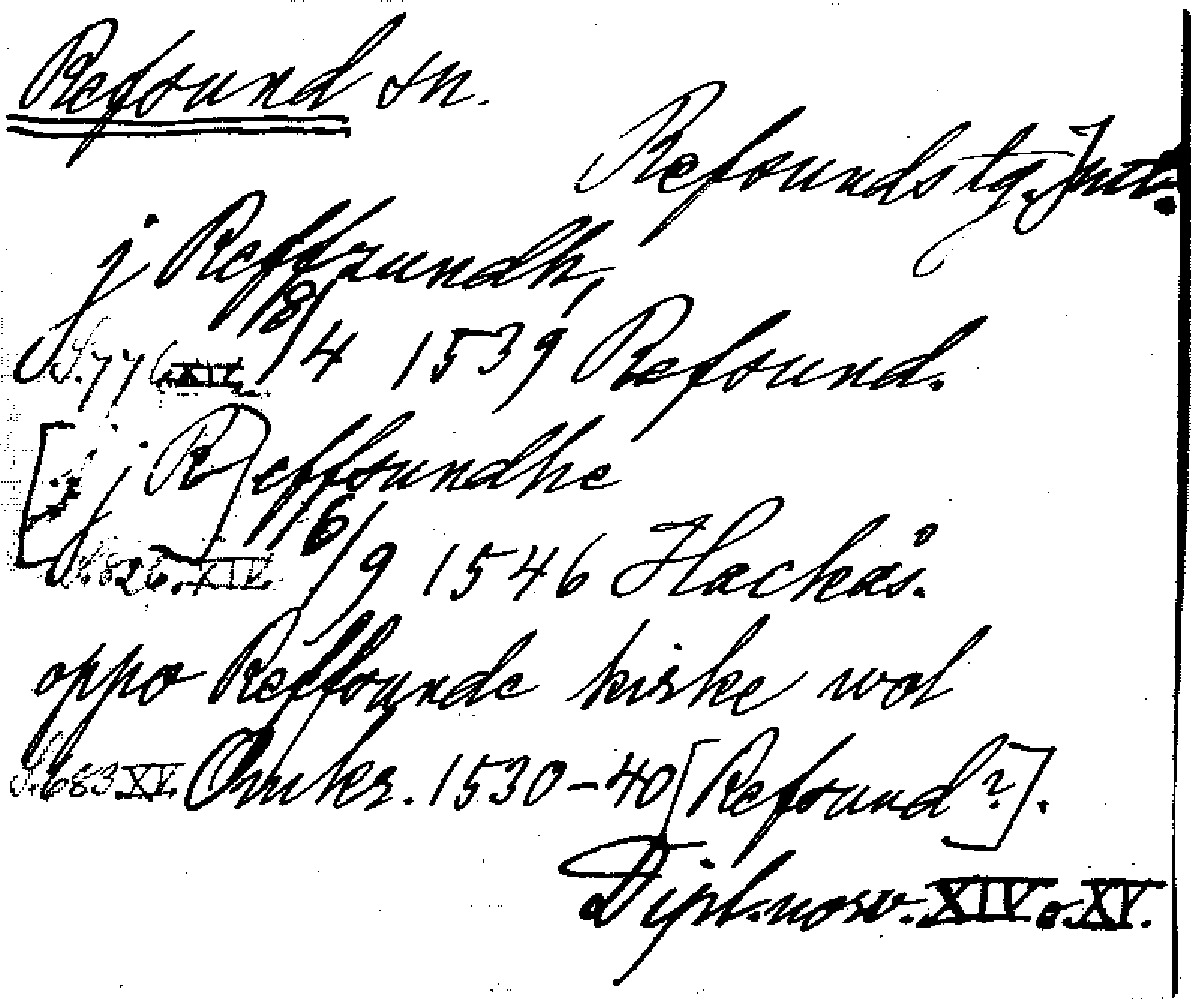 Refsund sn.
Refsunds tg. Jmtl.
j Reffzundh,
S. 776 XIV. 18/4 1539 Refsund.
[j R]effsundhe
S. 826. XIV. 16/9 1546 Hackås.
oppo Reffsunde kirke wol
S. 683 XV. Omkr. 1530-40 [Refsund?].
Dipl. norv. XIV o. XV.